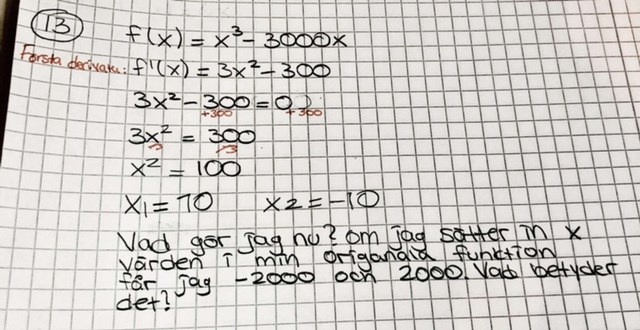 13 f(x) = x³ - 3000x
Första derivata: f'(x) = 3x² - 300
3x² - 300 = 0
+300 +300
3x² = 300
3 3
x² = 100
x1 = 10 x2 = -10
Vad gör jag nu? om jag sätter in x
värden i min origandla funktion
får jag -2000 och 2000. Vad betyder
det?